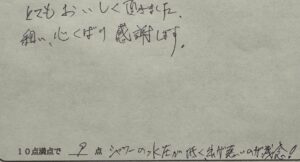 とてもおいしく頂きました。
細い、心くばり感謝します。
10点満点で 9 点 シャワーの水圧が低く出が悪いのが残念!